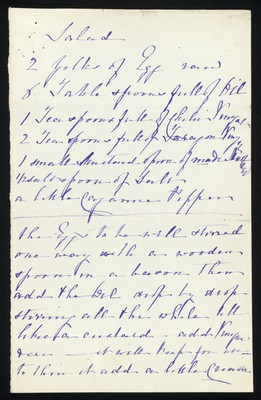 Salad
2 Yolks of Egg raw
6 Table spoons full of Oil
1 Tea spoonsfull of Chili Vinegar
2 Tea spoons full of Taragon Vin
1 small Mustard spoon of made
salt spoon of Salt
a little Cayanne Pepper
the Eggs to be well stirred
one way with a wooden
spoon in a bason then
add the Oil drop by drop
stirring all the while till
like a custard add Vinegar
it will keep for
to thin it add a little Cream